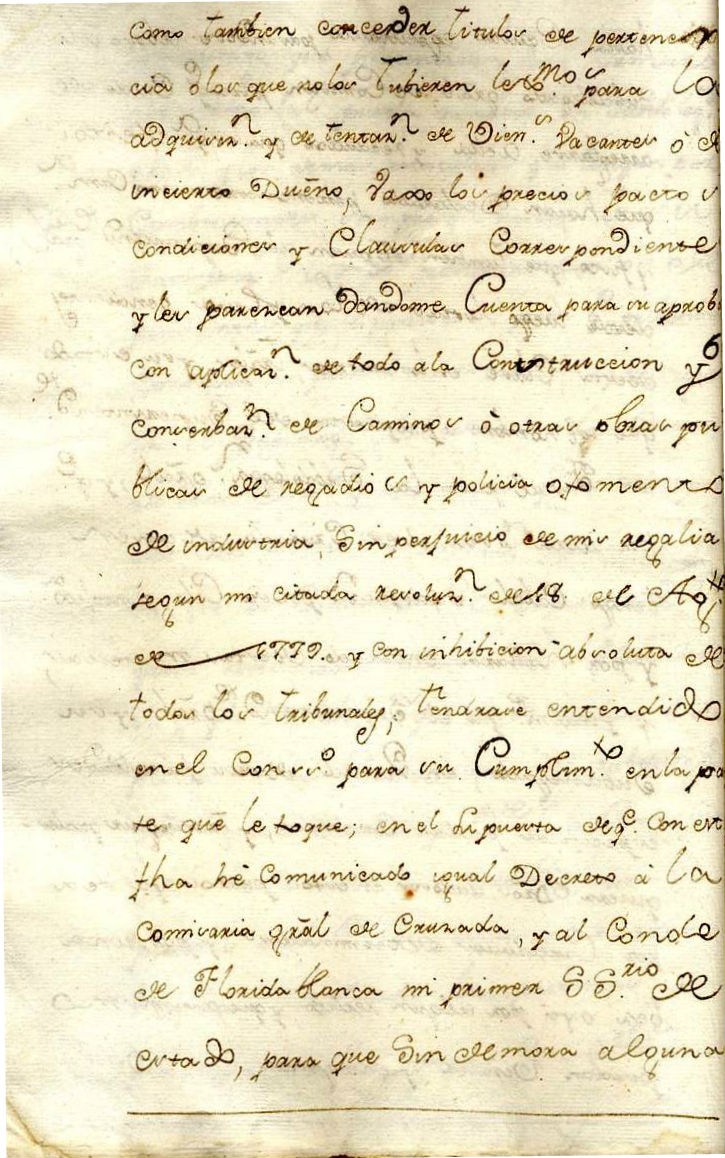 como tambien conceder titulos de pertenen
cia dlos que nolos tubieren lexmos para la
adquisizn. y detentazn. de Biens. Vacantes ò de
incierto Dueño, Vaxo los precios pactos
condiciones y Clausulas Correspondiente
y les parezcan dandome Cuenta para su aprob
con aplicazn. de todo ala Construccion y
Conserbazn. de Caminos ò otras obras pu
blicas de regadios y policia ofomento
de industria, Sin perjuicio de mis regalia
segun mi citada resoluzn. de 18. de Agto.
de 1779. y con inhibicion absoluta de
todos los tribunales, tendrase entendido
en el Conso para su Cumplimto. en la pa
te que le toque; en el supuesto deq. con est
fha hè Comunicado igual Decreto à la
Comisaria gral de Cruzada, y al Conde
de Florida blanca mi primer SS.rio de
estado, para que Sin demora alguna